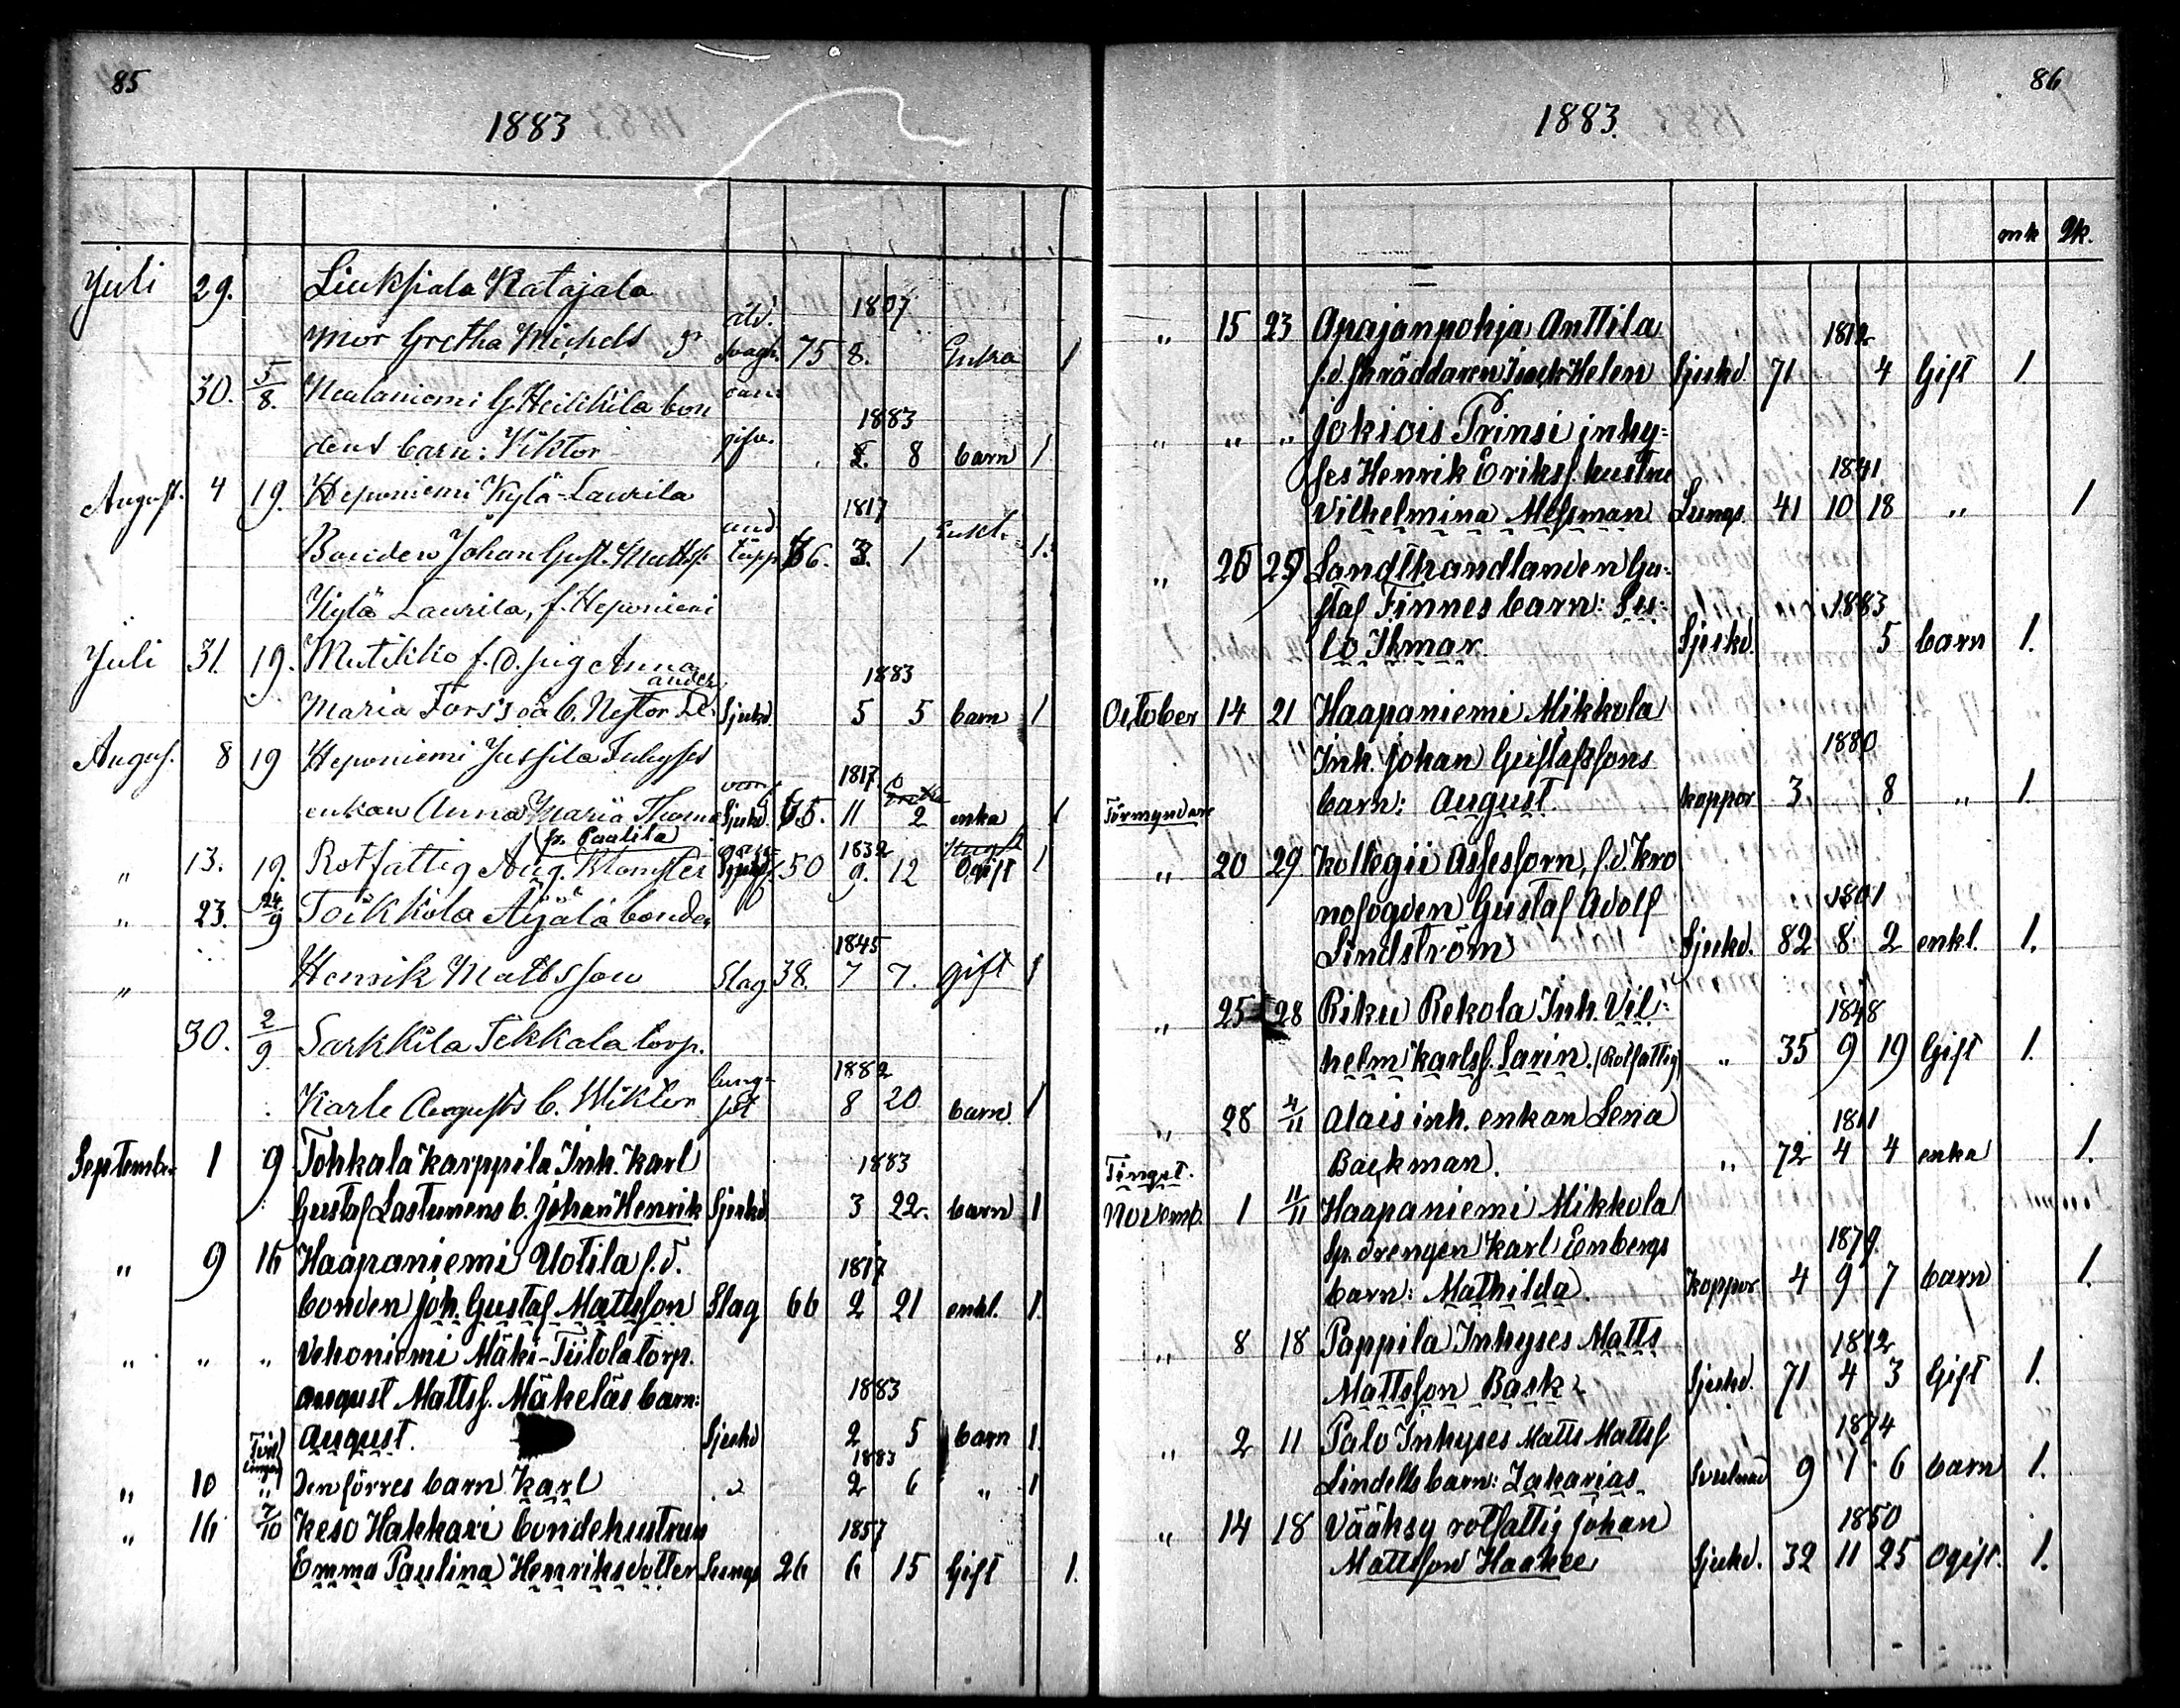 85
1883
Juli 29. Liuksiala Katajala
ald. 1807
Mor Gretha Michels dr svagh. 75 8. Enka 1
30. 5/8. Neulaniemi G. Heikkilä bon
1883
dens barn: Viktor 2. 8 barn 1
August. 4 19. Heponiemi Kylä-Laurila
1817 and Enkl.
Bonden Johan Gust. Matts. täpp 66. 3. 1 1.
Kylä Laurila, f. Heponieni
Juli 31. 19. Mutikko f.d. pig Anna
1883
Maria Förs's oä b. Nestor Sjukd. 5 5 barn 1
Augus. 8 19 Heponiemi Jussila Inhyses
1817
enkan Anna Maria Thoma Sjukd. 65. 11 2 enka 1
fr. Paalila
" 13. 19. Rotfattig Aug. 50 1832 9. 12 Ogift 1
" 23. 24/9 Toikkola Äijälä bonden
1845
" Henrik Mattsson Slag 38. 7 7. gift 1
30. 2/9. Sarkkila Tekkala torp.
lung- 1882
Karle Augusts b. Wiktor sot 8 20 barn. 1
September 1 9 Tohkala Karppila Inh. Karl 1883
Gustaf Lastunens b. Johan Henrik Sjukd. 3 22. barn 1
" 9 16 Haapaniemi Uotila f.d. 1817
bonden Joh. Gustaf Mattsson Slag 66 2 21 enkl. 1.
" " " Vehoniemi Mäki-Tiitola torp.
August Matts. Mäkeläs barn: 1883
August. Sjukd 2 5 barn 1.
Tvil
lingar 1883
" 10 " Den förres barn Karl 2 6 " 1
" 16 7/10 Keso Hakkari bondehustrun 1857
Emma Paulina Henriksdotter Lungs 26 6 15 Gift 1.
86
1883.
mk qk.
" 15 23 Apajanpohja Anttila 1812
f.d. skräddaren Isack Helen Sjukd. 71 4 Gift 1
" " " Jokiois Prinsi inhy-
ses Henrik Eriks. hustru 1841.
Vilhelmina Messman Lungs. 41 10 18 " 1
" 26 29 Landthandlanden Gu-
staf Finnes barn: Su- 1883
lo Ilmar. Sjukd. 5 barn 1.
October 14 21 Haapaniemi Mikkola
Inh. Johan Gustafssons 1880
Förmyndare barn: August koppor 3. 8 " 1.
" 20 29 Kollegii Assessorn, f.d. kro
nofogden Gustaf Adolf 1801
Lindström Sjukd. 82 8 2 enkl. 1.
" 25 28 Riku Rekola Inh. Vil- 1848
helm Karlss. Sarin. (Rotfattig) " 35 9 19 Gift 1.
" 28 4/11 Alais inh. enkan Lena 1811
Tinget. Backman. " 72 4 4 enka 1.
Novemb. 1 11/11 Haapaniemi Mikkola
Sp. drengen Karl Enbergs 1879.
barn: Mathilda. koppor 4 9 7 barn 1.
" 8 18 Pappila Inhyses Matts 1812
Mattsson Bask Sjukd. 71 4 3 Gift 1.
" 2 11 Palo Inhyses Matts Matts 1874
Lindells barn: Zakarias Svulnad 9 1 6 barn 1.
" 14 18 Vääksy rotfattig Johan 1850
Mattsson Haakee Sjukd. 32 11 25 Ogift. 1.